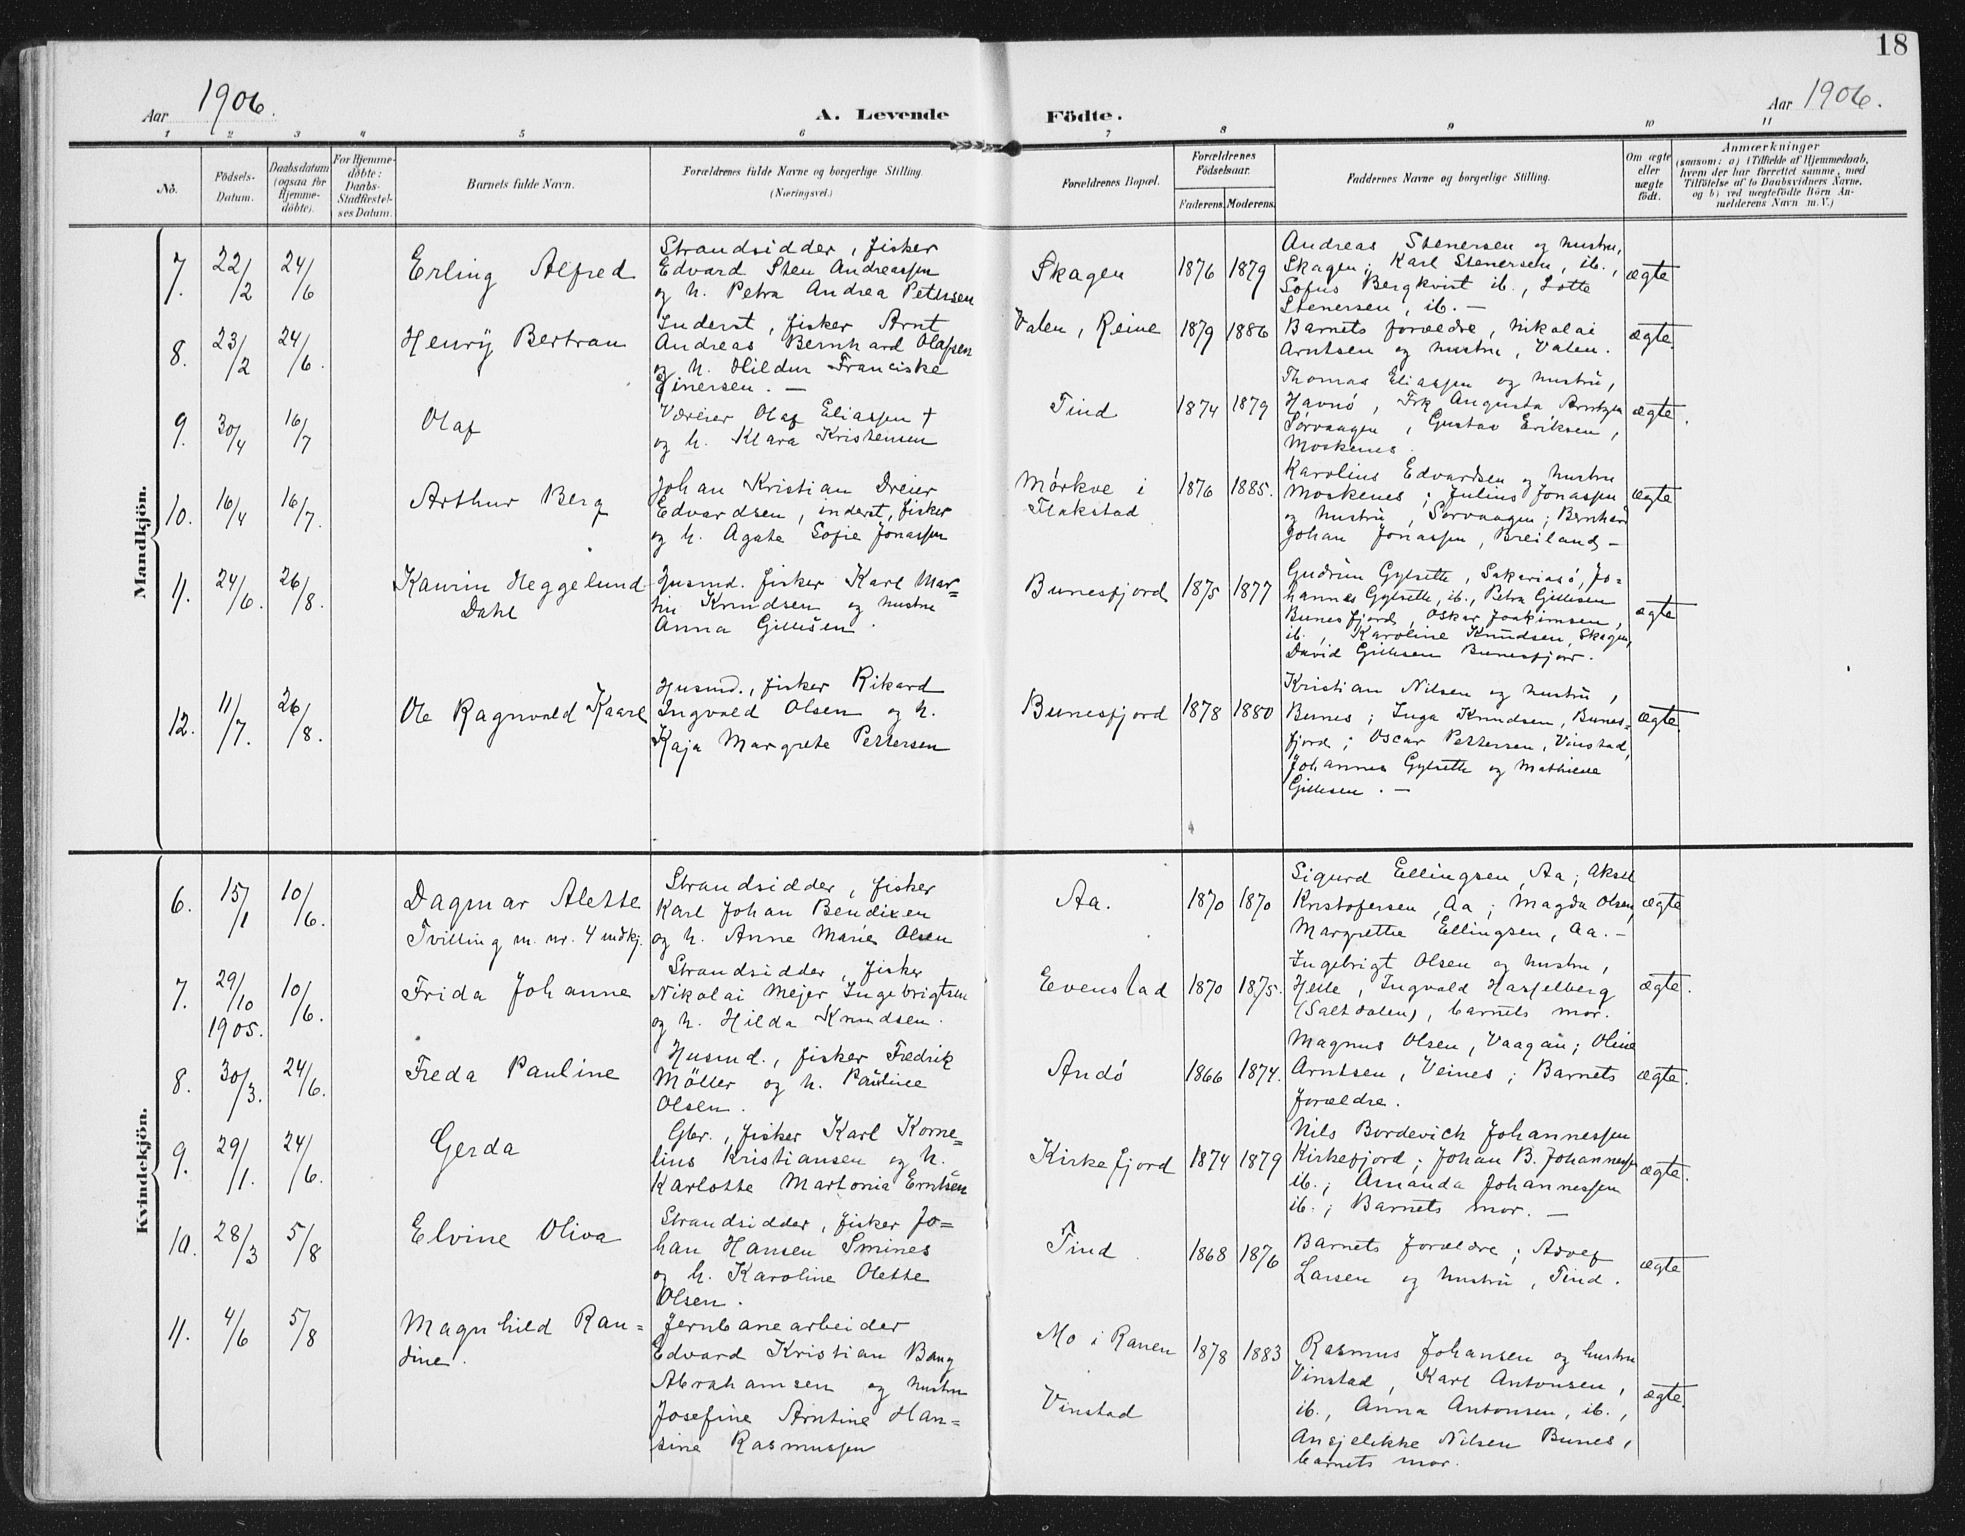 18
Aar 1906.
A. Levende Födte.
Aar 1906.
1 2 3 4 5 6 7 8 9 10 11
No.
Födsels-
Datum.
Daabsdatum
(ogsaa for
Hjemme-
döbte).
For Hjemme-
döbte:
Daabs-
Stadfæstel-
ses Datum.
Barnets fulde Navn.
Forældrenes fulde Navne og borgerlige Stilling
(Næringsvei.)
Forældrenes Bopæl.
Forældrenes
Födselsaar.
Faderens. Moderens.
Faddernes Navne og borgerlige Stilling.
Om ægte
eller
uægte
født.
Anmærkninger
(saasom: a) i Tilfælde af Hjemmedaab,
hvem der har forrettet samme, med
Tilföielse af to Daabsvidners Navne,
og b) ved uægtefödte Börn An-
melderens Navn m. V.)
Mandkjön.
7. 22/2 24/6 Erling Alfred
Strandsidder, fisker
Edvard Sten Andreassen
og h. Petra Andrea Petersen
Skagen 1876 1879
Andreas Stenersen og hustru,
Skagen; Karl Stenersen, ib.,
Sofus Bergkvist ib., Lotte
Stenersen, ib. —
ægte
8. 23/2 24/6. Henry Bertran
Inderst, fisker Arnt
Andreas Bernhard Olafsen
og h. Hildur Franciske
Einersen. —
Valen, Reine 1879 1886
Barnets forældre, Nikolai
Arntsen og hustru, Valen.
ægte.
9. 30/4 16/7 Olaf
Væreier Olaf Eliassen †
og h. Klara Kristensen
Tind 1874 1879
Thomas Eliassen og hustru,
Havnö, Frk Augusta Arntzen
Sørvaagen, Gustav Eriksen,
Moskenes.
ægte.
10. 16/4 16/7. Arthur Berg
Johan Kristian Dreier
Edvardsen, inderst, fisker
og h. Agate Sofie Jonassen
Mörkve i
Flakstad
1876 1885.
Karolius Edvardsen og hustru
Moskenes; Julius Jonassen
og hustru, Sørvaagen; Bernhard
Johan Jonassen, Breiland —
ægte
11. 24/6. 26/8. Kaurin Heggelund
Dahl
Husmd. fisker Karl Mar-
tin Knudsen og hustru
Anna Gillesen.
Bunesfjord 1875 1877
Gudrun Gylseth, Sakariasö, Jo-
hannes Gylseth, ib., Petra Gillesen
Bunesfjord, Oskar Joakimsen,
ib., Karoline Knudsen, Skagen,
David Gillesen Bunesfjord.
ægte
12. 11/7. 26/8. Ole Ragnvald Kaarl
Husmd., fisker Rikard
Ingvald Olsen og h.
Kaja Margrete Pettersen
Bunesfjord 1878 1880
Kristian Nilsen og hustru,
Bunes; Inga Knudsen, Bunes-
fjord; Oscar Pettersen, Vinstad,
Johannes Gylseth og Mathiene
Gillesen. —
ægte.
Kvindekjön.
6. 15/1 10/6. Dagmar Alette
Tvilling m. nr. 4 mdkj.
Strandsidder, fisker
Karl Johan Bendixen
og h. Anne Marie Olsen
Aa. 1870 1870
Sigurd Ellingsen, Aa; Aksel
Kristofersen, Aa; Magda Olsen,
Margrethe Ellingsen, Aa. —
ægte
7. 29/10 1905. 10/6. Frida Johanne
Strandsidder, fisker
Nikolai Mejer Ingebrigtsen
og h. Hilda Knudsen.
Evenstad 1870 1875.
Ingebrigt Olsen og hustru,
Helle, Ingvald Hasselberg
(Saltdalen), barnets mor.
ægte.
8. 30/3. 24/6. Freda Pauline
Husmd., fisker Fredrik
Möller og h. Pauline
Olsen.
Andö 1866 1874.
Magnus Olsen, Vaagan; Oline
Arntsen, Veines; Barnets
forældre.
ægte.
9. 29/1. 24/6. Gerda
Gbr., fisker Karl Korne-
lius Kristiansen og h.
Karlotte Martonia Erntsen
Kirkefjord 1874 1879
Nils Bordevich Johannessen
Kirkefjord; Johan B. Johannessen
ib.; Amanda Johannessen
ib.; Barnets mor. —
ægte.
10. 28/3 5/8 Elvine Oliva
Strandsidder, fisker Jo-
han Hansen Smines
og h. Karoline Olette
Olsen.
Tind 1868 1876
Barnets forældre; Adolf
Larsen og hustru, Tind.
ægte
11. 4/6 5/8 Magnhild Ran-
dine.
Jernbanearbeider
Edvard Kristian Bang
Abrahamsen og hustru
Josefine Arntine Han-
sine Rasmussen
Mo i Ranen
Vinstad
1878 1883
Rasmus Johansen og hustru
Vinstad, Karl Antonsen,
ib., Anna Antonsen, ib.,
Ansjelikke Nilsen Bunes,
barnets mor.
ægte.